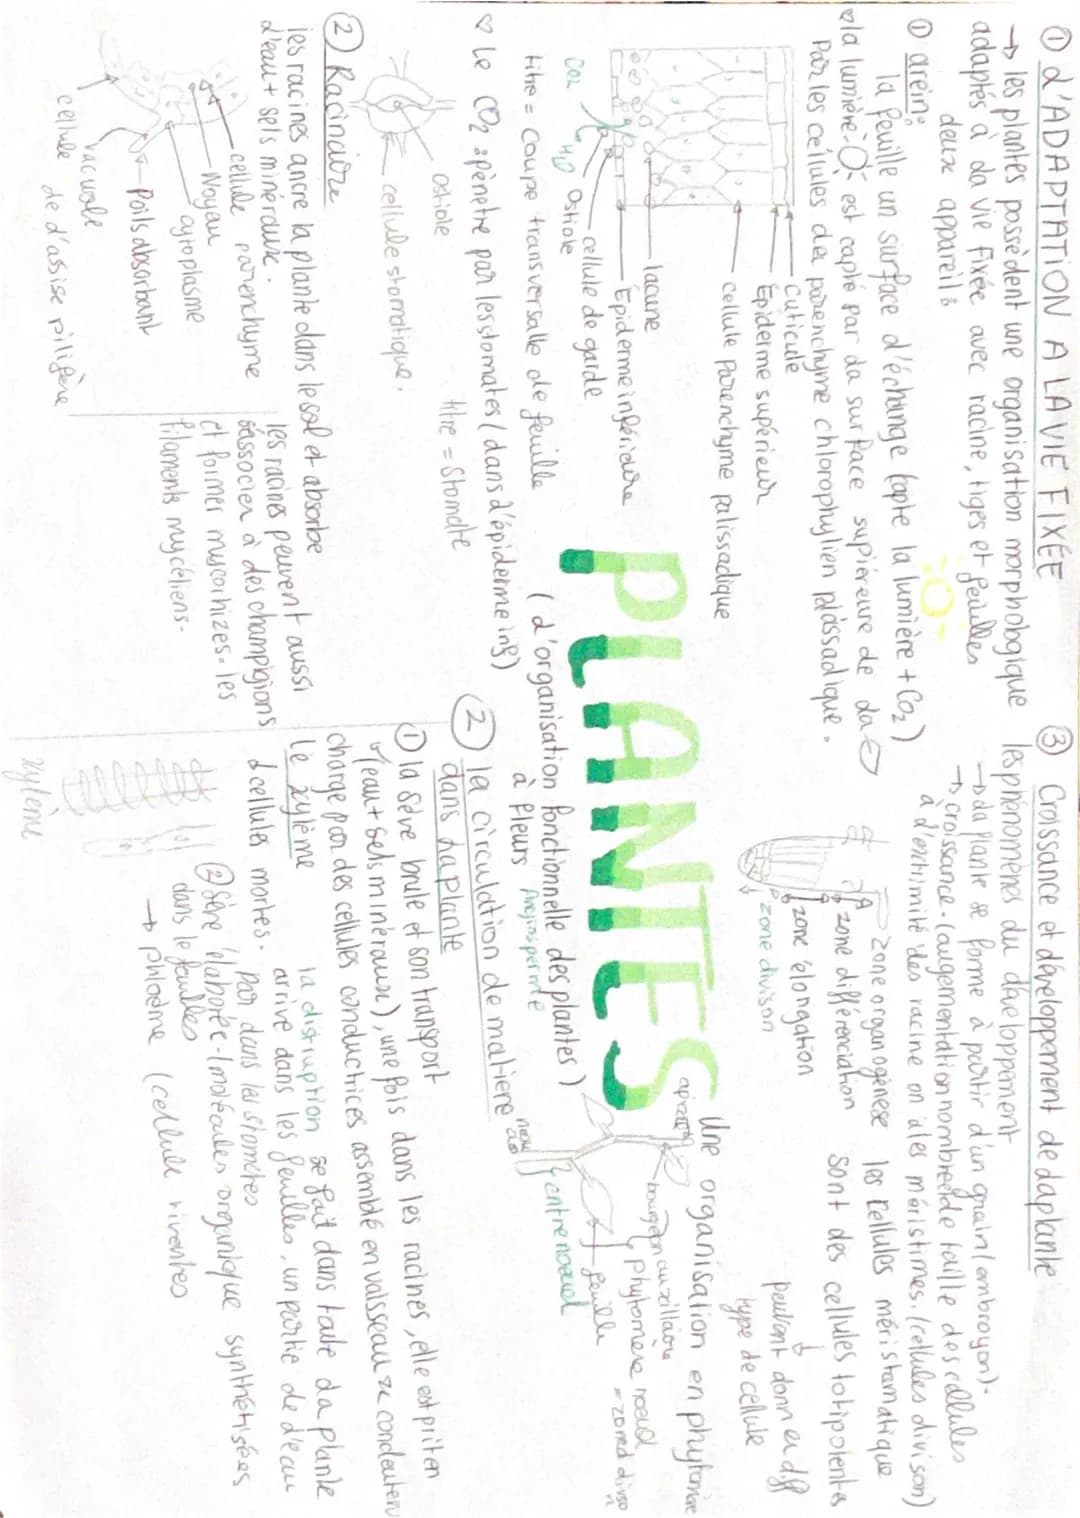 ① L'ADAPTATION A LA VIE FIXÉE
→ les plantes possèdent une organisation morphologique
adaptés à la vie fixée avec racine, tiges et feuilles
deux appareils
① arein:
la feuille un surface d'échange (capte la lumière + Co2)
la lumière: est capté par la surface supiereure de la
Par les cellules de parenchyme chlorophylien palissadique.
Cuticule
Epiderme supérieur
cellule parenchyme palissadique
lacune
Epiderme inférieure
cellule de garde
Ostiole
Co2
H2O
titre = Coupe transversalle de feuille
Le CO2: pénètre par les stomates (dans l'épiderme inf)
ostiole
cellule stomatique.
titre = Stomate
② Racinaire
les racines ancre la plante dans le sol et absorbe
l'eau + sels minéraux.
cellule parenchyme
Noyau
cytoplasme
Poils absorbant
vacuole
cellule de l'assise pilifère
les racines peuvent aussi
s'associer à des champigions
et former mycorhizes. les
filaments mycéliens.
PLANTES
(L'organisation fonctionnelle des plantes)
à fleurs Angiosperme
② la circulation de matiere
dans la plante
① la sève brute et son transport
(eau + sels minéraux), une fois dans les racines, elle est prit en
charge par des cellules conductrices assemblé en vaisseaux conducteurs
le xylème
↓ cellules mortes.
la distruption se fait dans toute la plante
arrive dans les feuilles, un partie de l'eau
par dans les stomates
② Sève élaborée - (molécules organique synthétisées
dans le feuilles
→ phloème (cellule vivantes
xylème
③ Croissance et développement de la plante
les phénomènes du développment
→ la plante se forme à partir d'un grain (embroyon).
→ croissance. (augementation nombre de taille des cellules
a l'entrimité des racine on a les méristimes. (cellules divison)
zone organogenèse
zone différenciation
zone élongation
zone divison
les cellules méristamatique
sont des cellules totipotentes
↓
peuvent donner diff
type de cellule
Une organisation en phytomère
apicam
bourgeon auxilliaire
phytomère
feuille
entre noeud
noeud